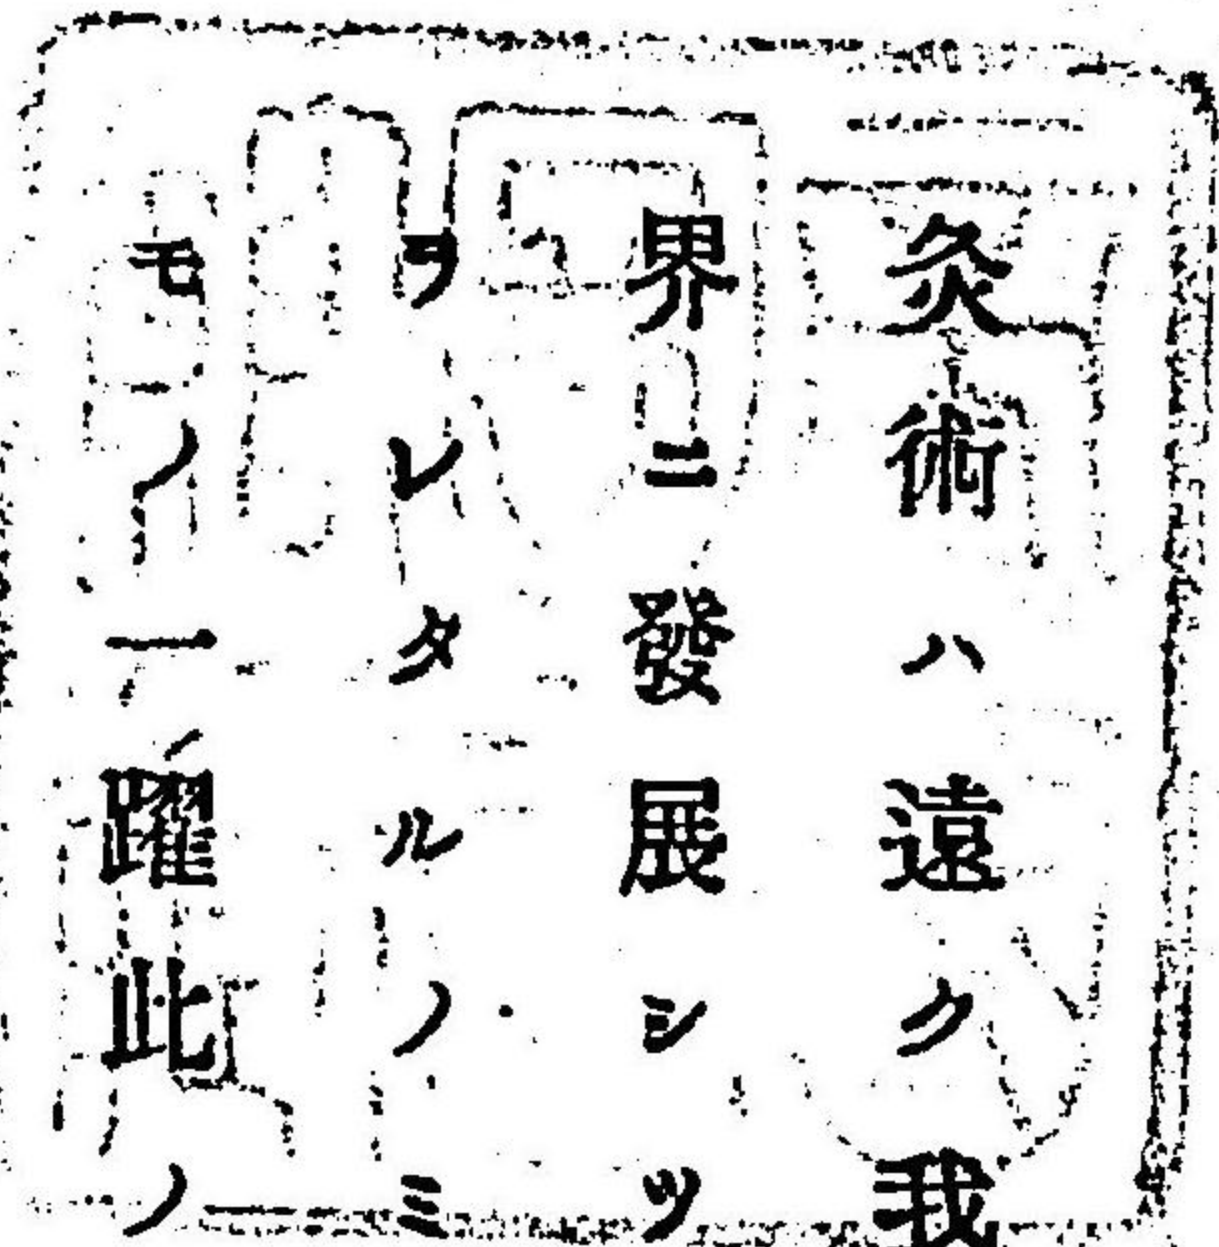 灸術ハ遠ク我
界ニ發展シツ
ヲレタルノミ
モノ一躍此ノ